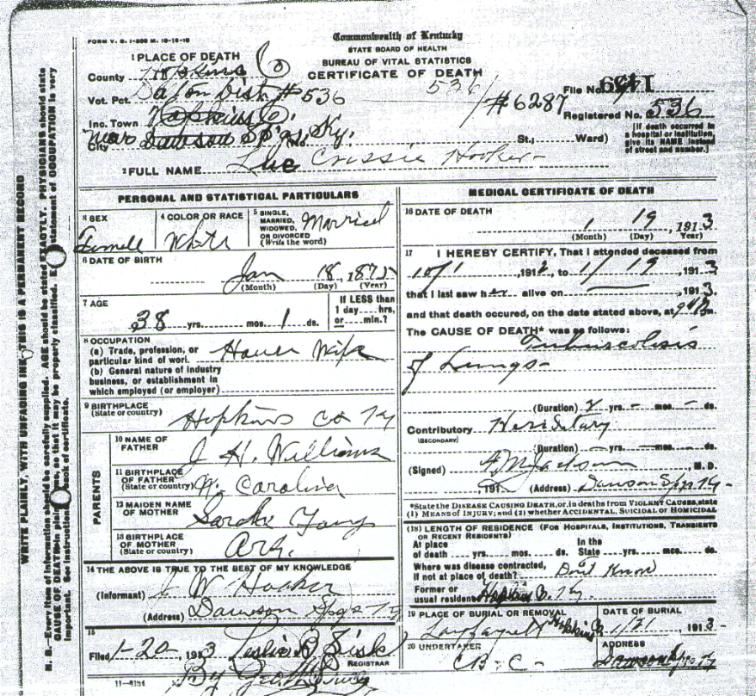 FORM V. S. 1-200 M. 10-16-10
Commonwealth of Kentucky
STATE BOARD OF HEALTH
BUREAU OF VITAL STATISTICS
CERTIFICATE OF DEATH
1 PLACE OF DEATH
County Hopkins
Vot. Pct. Dalton Dist. #536
Inc. Town Hopkins Co.
City near Dawson Sp'gs, Ky. St.; Ward)
536 / #6287
File No. 1459
Registered No. 536
[If death occurred in a hospital or institution, give its NAME instead of street and number.]
2 FULL NAME Lue Crissie Hooker
PERSONAL AND STATISTICAL PARTICULARS
3 SEX Femell
4 COLOR OR RACE White
5 SINGLE, MARRIED, WIDOWED, OR DIVORCED (Write the word) Married
6 DATE OF BIRTH
Jan 18, 1875
(Month) (Day) (Year)
7 AGE
38 yrs. mos. 1 ds.
If LESS than 1 day....hrs, or....min.?
8 OCCUPATION
(a) Trade, profession, or particular kind of work. House Wife
(b) General nature of industry business, or establishment in which employed (or employer)
9 BIRTHPLACE
(State or country) Hopkins Co Ky
PARENTS
10 NAME OF FATHER J H. Williams
11 BIRTHPLACE OF FATHER (State or country) N. Carolina
12 MAIDEN NAME OF MOTHER Sarah
13 BIRTHPLACE OF MOTHER (State or country) Ark.
14 THE ABOVE IS TRUE TO THE BEST OF MY KNOWLEDGE
(Informant) J W Hooker
(Address) Dawson Spgs Ky
15
Filed 1-20-1913 Leslie B Sisk
REGISTRAR
By
11-5184
MEDICAL CERTIFICATE OF DEATH
16 DATE OF DEATH
1 19, 1913
(Month) (Day) Year)
17 I HEREBY CERTIFY, That I attended deceased from
10/1, 1912, to 1/19, 1913
that I last saw her alive on , 1913
and that death occured, on the date stated above, at m.
The CAUSE OF DEATH* was as follows:
Tubuscolisis
of Lungs
(Duration) 2 yrs. mos. ds.
Contributory (SECONDARY) Hereditary
(Duration) yrs. mos. ds.
(Signed) Jackson M. D.
, 191 (Address) Dawson Sp'gs Ky
*State the DISEASE CAUSING DEATH, or, in deaths from VIOLENT CAUSES, state
(1) MEANS OF INJURY; and (2) whether ACCIDENTAL, SUICIDAL OR HOMICIDAL
(18) LENGTH OF RESIDENCE (FOR HOSPITALS, INSTITUTIONS, TRANSIENTS OR RECENT RESIDENTS)
At place of death yrs. mos. ds. In the State yrs. mos. ds.
Where was disease contracted, if not at place of death? Dont Know
Former or usual residence Hopkins Co. Ky.
19 PLACE OF BURIAL OR REMOVAL
DATE OF BURIAL
1/21, 1913
20 UNDERTAKER
C B C
ADDRESS
WRITE PLAINLY, WITH UNFADING INK—THIS IS A PERMANENT RECORD
N. B.—Every item of information should be carefully supplied. AGE should be stated EXACTLY. PHYSICIANS should state
CAUSE OF DEATH in plain terms, so that it may be properly classified. Exact statement of OCCUPATION is very
important. See instructions on back of certificate.